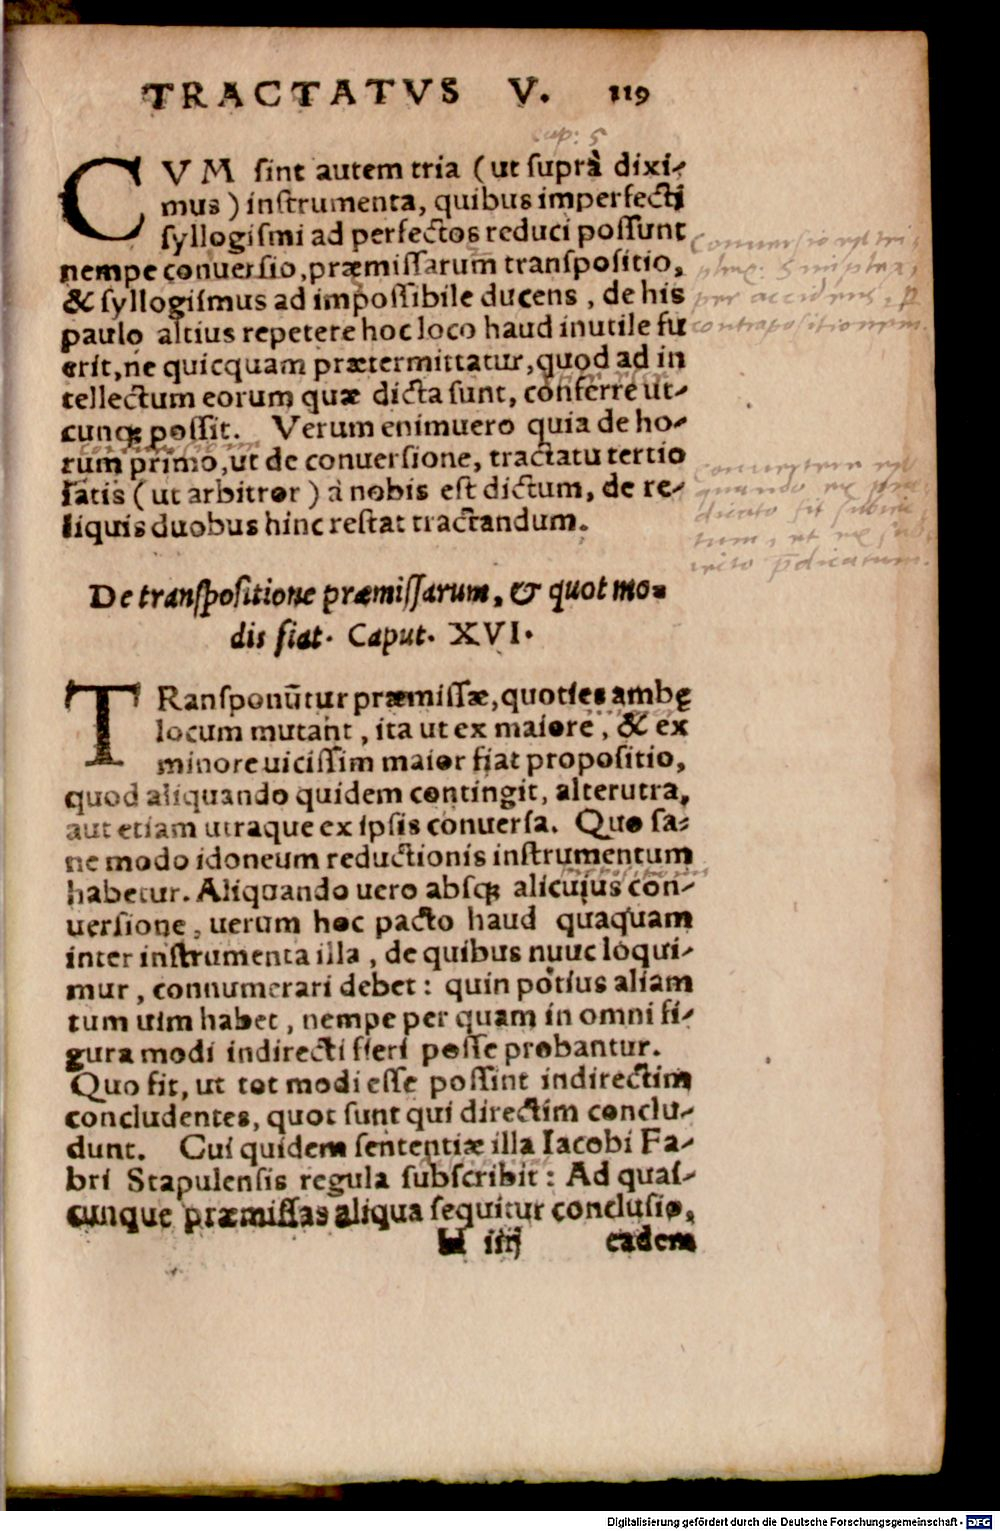 TRACTATVS V. 119
cap: 5
CVM sint autem tria (ut suprà dixi-
mus) instrumenta, quibus imperfecti
syllogismi ad perfectos reduci possunt
nempe conuersio, præmissarum transpositio,
& syllogismus ad impossibile ducens, de his
paulo altius repetere hoc loco haud inutile fu
erit, ne quicquam prætermittatur, quod ad in
tellectum eorum quæ dicta sunt, conferre ut-
cunqȝ possit. Verum enimuero quia de ho-
rum primo, ut de conuersione, tractatu tertio
satis (ut arbitror) à nobis est dictum, de re-
liquis duobus hinc restat tractandum.
Conuersio est tri-
plex: Simplex,
per accidens, p
contrapositionem.
conuertere est
quando ex præ
dicato fit subiec
tum, et ex sub
iecto p̄dicatum.
De transpositione præmissarum, & quot mo-
dis fiat. Caput. XVI.
TRansponūtur præmissæ, quoties ambę
locum mutant, ita ut ex maiore, & ex
minore uicissim maior fiat propositio,
quod aliquando quidem contingit, alterutra,
aut etiam utraque ex ipsis conuersa. Quo sa-
ne modo idoneum reductionis instrumentum
habetur. Aliquando uero absqȝ alicuius con-
uersione, uerum hoc pacto haud quaquam
inter instrumenta illa, de quibus nuuc loqui-
mur, connumerari debet: quin potius aliam
tum uim habet, nempe per quam in omni fi-
gura modi indirecti fieri posse probantur.
Quo fit, ut tot modi esse possint indirectim
concludentes, quot sunt qui directim conclu-
dunt. Cui quidem sententiæ illa Iacobi Fa-
bri Stapulensis regula subscribit: Ad quas-
cunque præmissas aliqua sequitur conclusio,
H iiij eadem
Digitalisierung gefördert durch die Deutsche Forschungsgemeinschaft - DFG